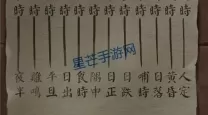 時 時 時 時 時 時 時 時 時 時 時 時
星芒手游网
夜半
雞鳴
平旦
日出
食時
隅中
日正
日跌
哺時
日落
黃昏
人定